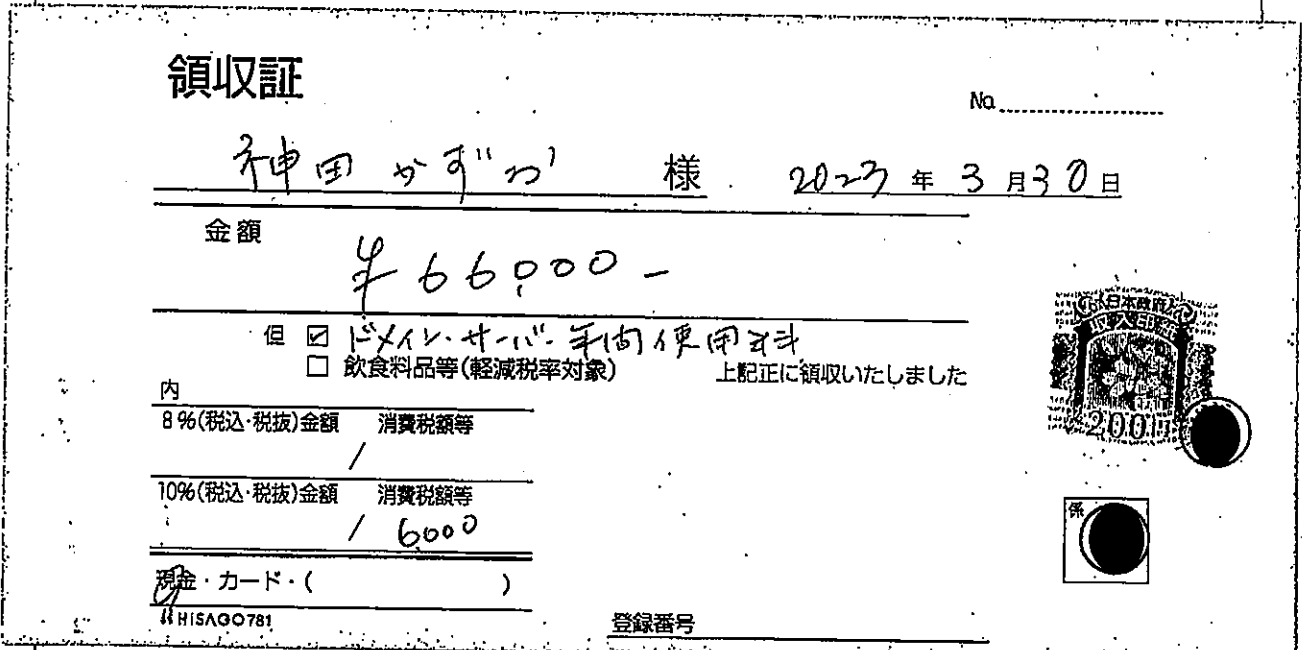 領収証
No.
神田 かずお 様 2023年3月30日
金額
¥66,000-
但 ☑ ドメイン・サーバー年間使用料
□ 飲食料品等(軽減税率対象) 上記正に領収いたしました
内
8%(税込・税抜)金額 消費税額等
/
10%(税込・税抜)金額 消費税額等
/ 6000
現金・カード・( )
HISAGO 781
登録番号
日本政府
収入印紙
200円
係